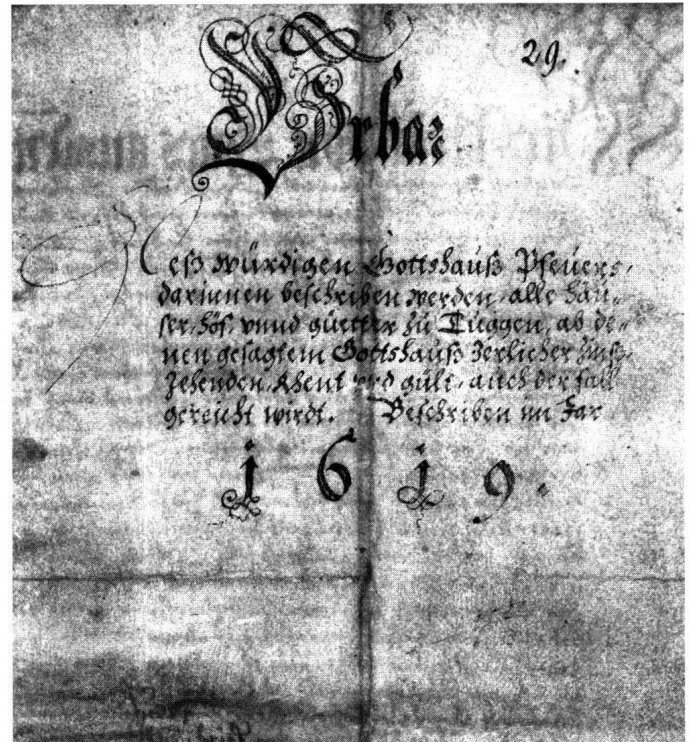 29.
Vrbar
Deß würdigen Gottshauß Pfeuers,
darinnen beschriben werden, alle häu„
ser, höf, vnnd güetter zu Tuggen, ab de„
nen gesagtem Gottshauß Jerlicher Zinß,
Zehenden, Rhent vnd gült, auch der fall
gereicht wirdt. Beschriben im Jar
1619.